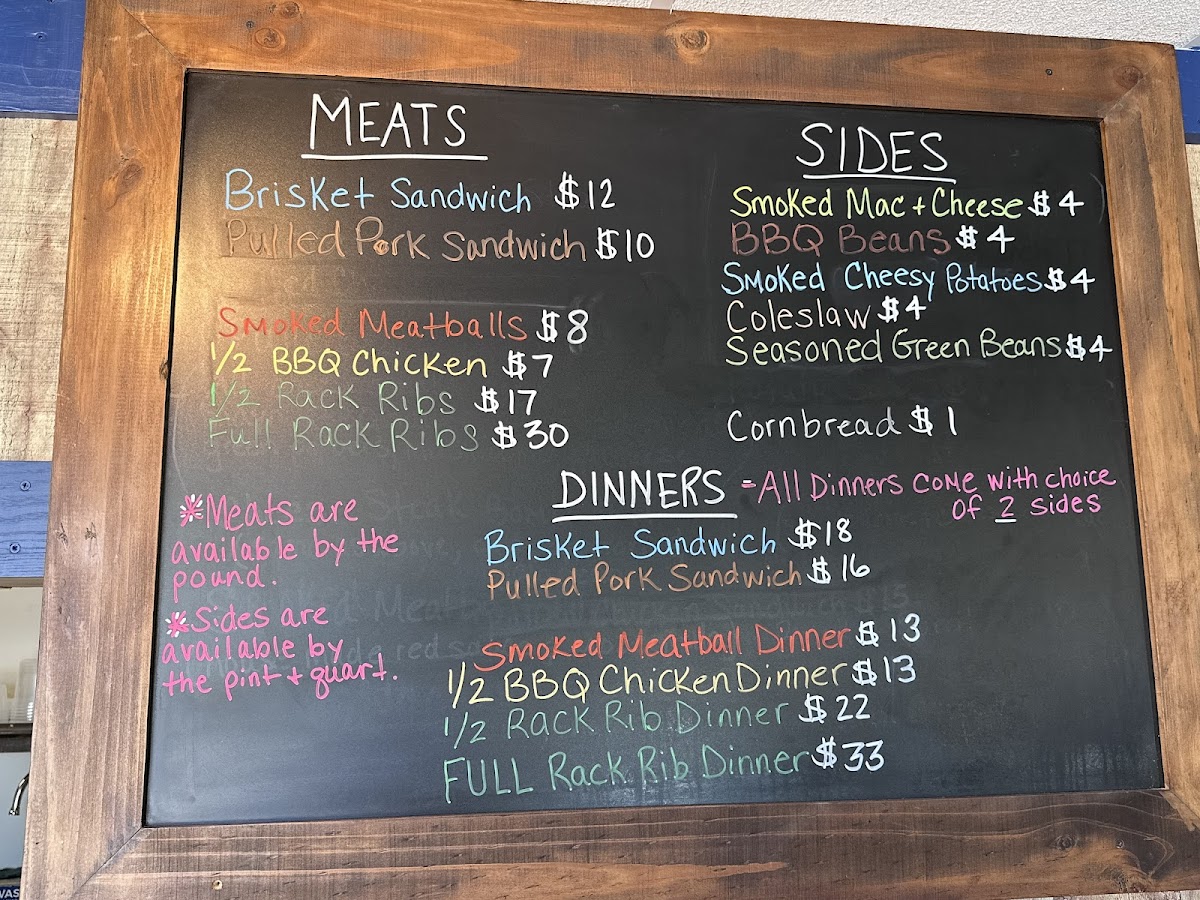 MEATS
Brisket Sandwich $12
Pulled Pork Sandwich $10
Smoked Meatballs $8
1/2 BBQ Chicken $7
1/2 Rack Ribs $17
Full Rack Ribs $30
*Meats are
available by the
pound.
*Sides are
available by
the pint + quart.
SIDES
Smoked Mac + Cheese $4
BBQ Beans $4
Smoked Cheesy Potatoes $4
Coleslaw $4
Seasoned Green Beans $4
Cornbread $1
DINNERS - All Dinners come with choice
of 2 sides
Brisket Sandwich $18
Pulled Pork Sandwich $16
Smoked Meatball Dinner $13
1/2 BBQ Chicken Dinner $13
1/2 Rack Rib Dinner $22
FULL Rack Rib Dinner $33